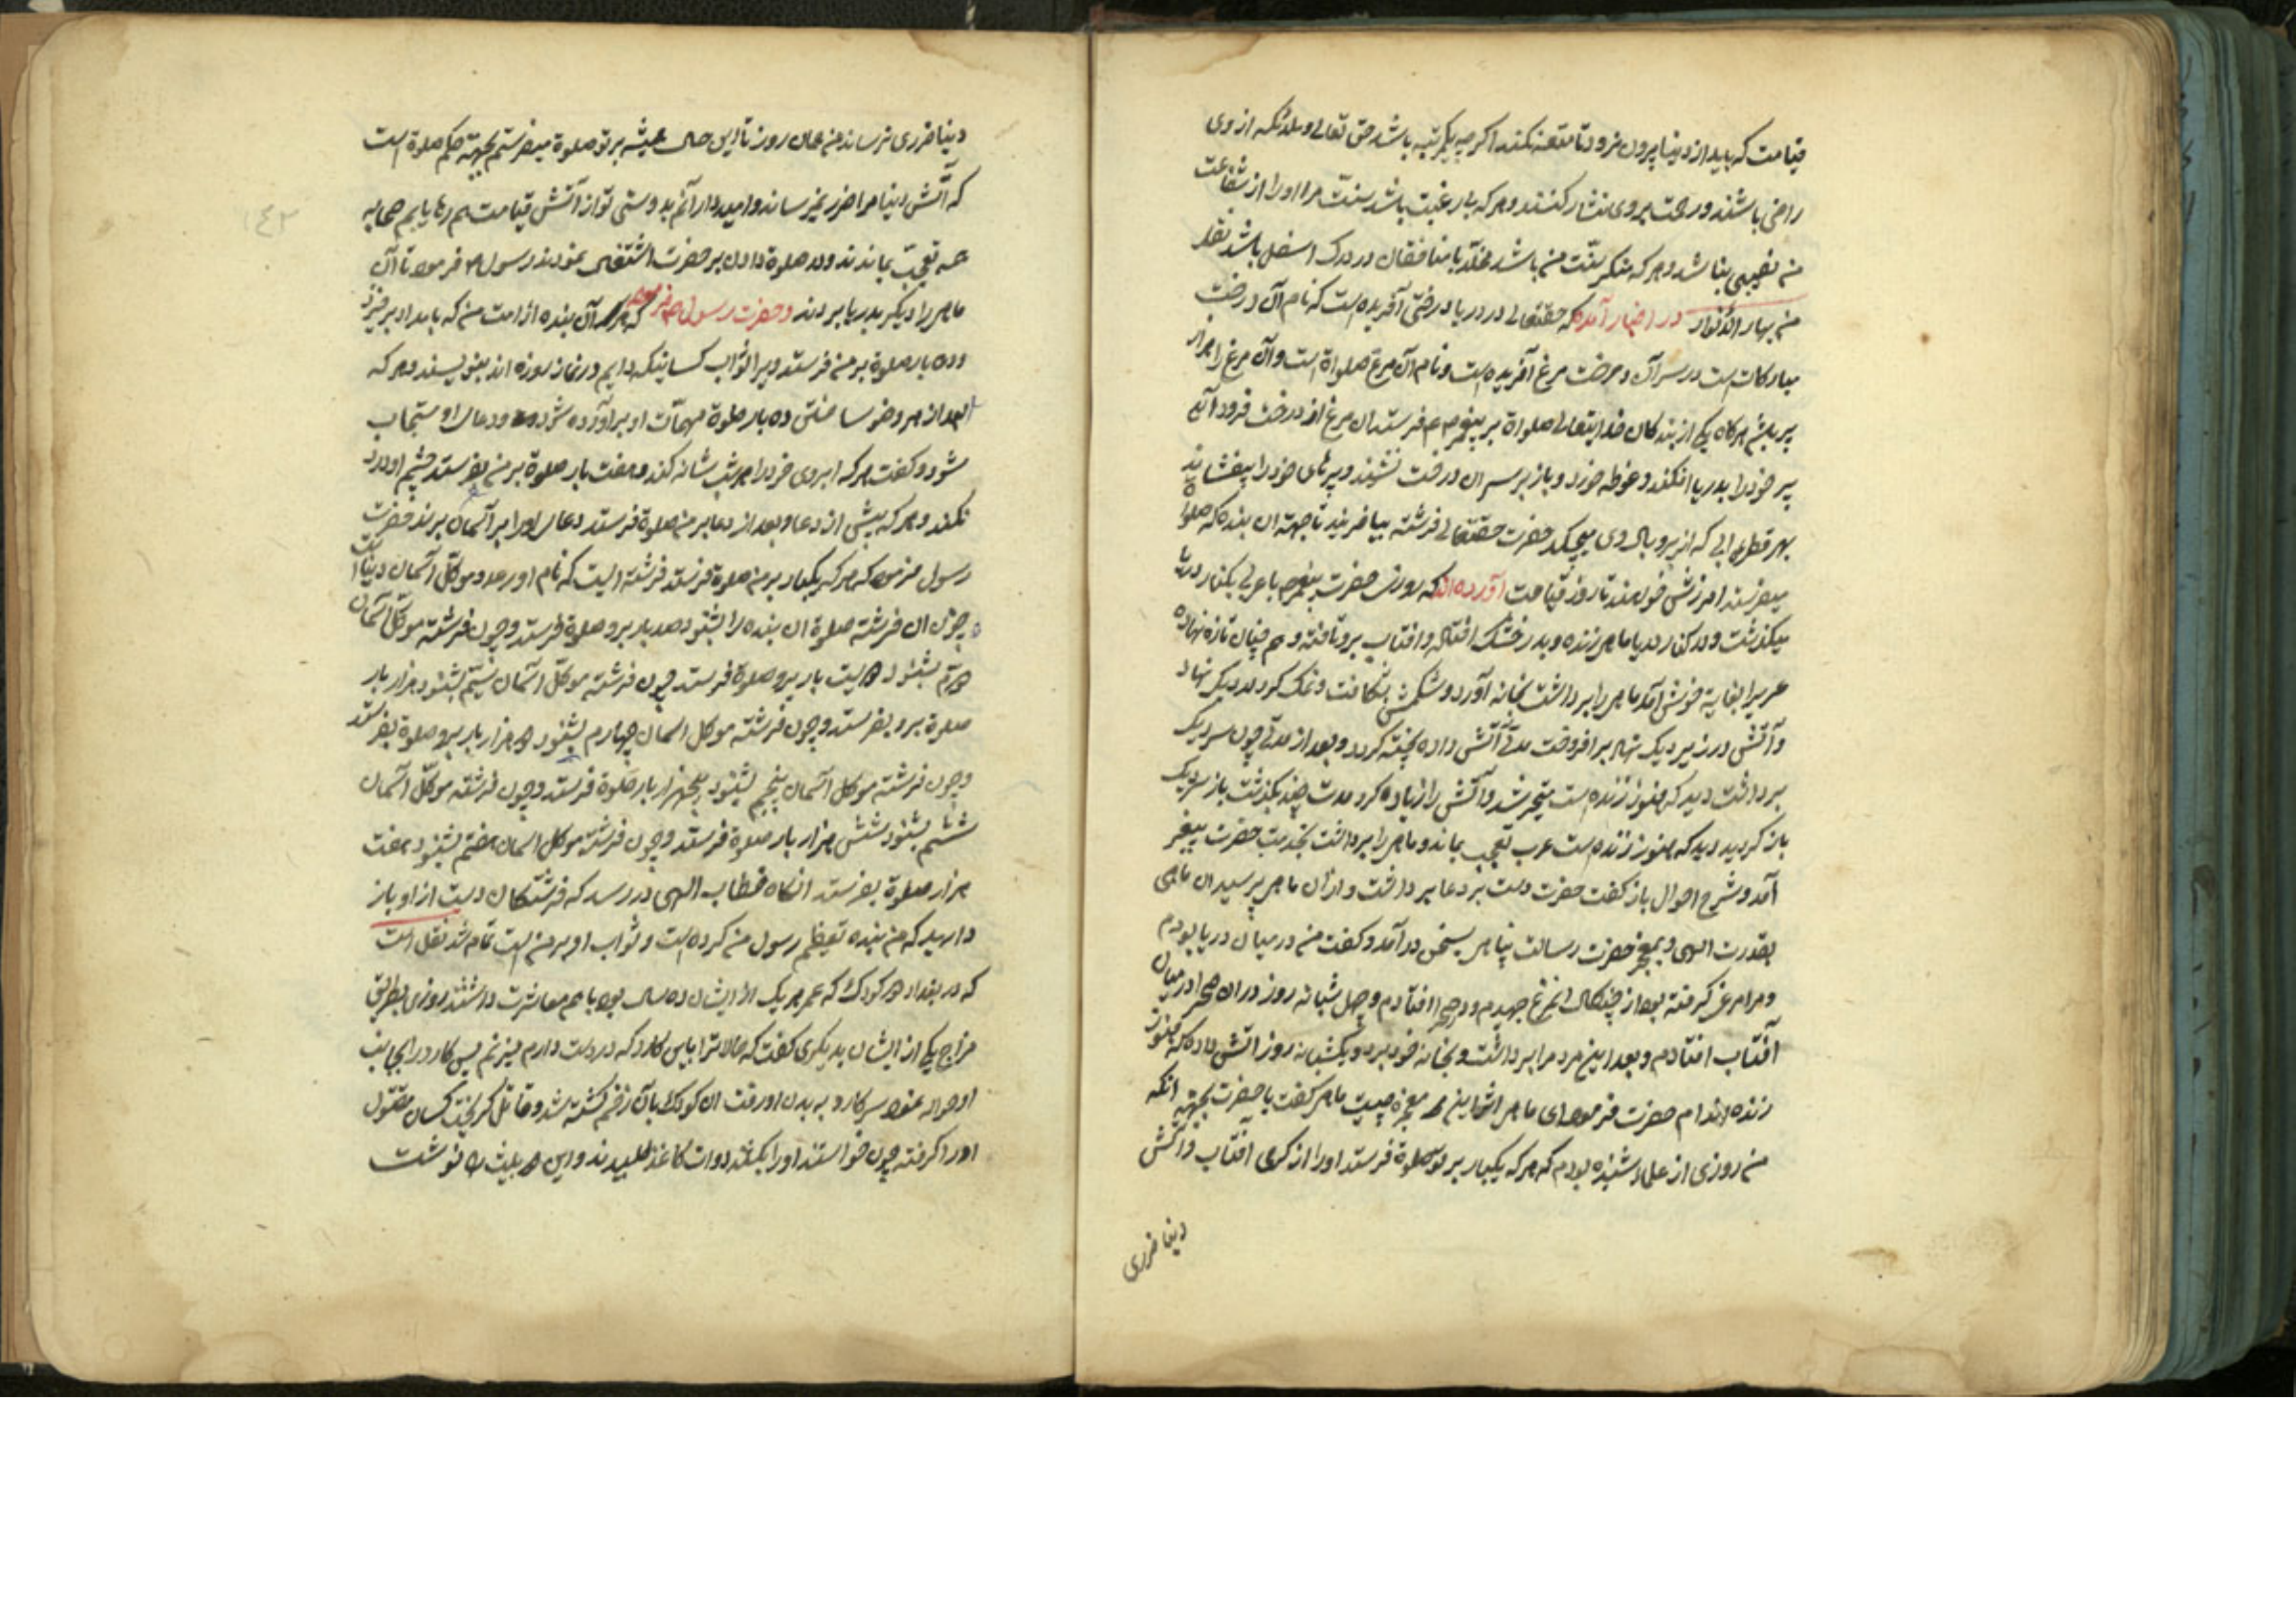 قیامت که باید از دنیا بیرون نرود تا متعه نکند اکرچه یکمرتبه باشد حق تعالی و ملائکه از وی
راضی باشند و رحمت بروی نثار کنند و هرکه بارغبت باشد سنت مرا او را از شفاعت
من نصیبی نباشد و هرکه منکر سنت من باشد مخلد با منافقان در درک اسفل باشد نقل
من بهار الانوار در اخبار آمده که حقتعالی در دریا درختی آفریده است که نام آن درخت
مبارکات است در سر آن درخت مرغ آفریده است و نام آن مرغ صلواة است و آن مرغ را هزار
پر باشد هرکاه یکی از بندکان خدایتعالی صلواة بر پیغمبر فرستد آن مرغ از درخت فرود آید
پر خود را بدریا افکند و غوطه خورد و باز بر سر آن درخت نشیند و پرهای خود را بیفشاند
بهر قطره آبی که از پر و بال وی بچکد حضرت حقتعالی فرشته بیافریند تا جهته آن بنده که صلوة
میفرستد امرزش خواهند تا روز قیامت آورده اند که روزی حضرت پیغمبر با عربی بکنار دریا
میکذشت و در کنار دریا ماهی زنده و بدر خشک افتاده و آفتاب برو تافته و هم چنان تازه نهاده
عرب را بغایة خوش آمد ماهی را برداشت بخانه آورد و شکمش بشکافت و نمک کرد در دیک نهاد
و آتش در زیر دیک نهاد برافروخت مدتی آتش داد پخته کردد و بعد از مدتی چون سر دیک
برداشت دید که هنوز زنده است متحیر شد و آتش را زیاده کرد مدت چند بکذشت باز سر دیک
باز کردید دید که هنوز زنده است عرب تعجب بماند و ماهی را برداشت بخدمت حضرت پیغمبر
آمد و شرح احوال باز کفت حضرت دست بر دعا برداشت و از آن ماهی پرسید آن ماهی
بقدرت الهی و بمعجز حضرت رسالت پناهی بسخن در آمد و کفت من در میان دریا بودم
و مرا مرغ کرفته بود از چنکال آن مرغ جهیدم و در صحرا افتادم و چهل شبانه روز در آن صحرا در میان
آفتاب افتادم و بعد این مرد مرا برداشت و بخانه خود برد و یکشبانه روز آتش داد که هنوز
زنده ام حضرت فرمود ای ماهی این معجزه چیست ماهی کفت یا حضرت بجهته آنکه
من روزی از علما شنیده بودم که هرکه یکبار بر تو صلوة فرستد او را از کرمی آفتاب و آتش
دنیا ضرری
دنیا ضرری نرساند من همان روز تا این حال همیشه بر تو صلوة میفرستم بجهته حکم صلوة است
که آتش دنیا مرا ضرر نمیرساند و امیدوار آنم بدوستی تو از آتش قیامت هم رها یابم صحابه
همه تعجب بماندند و در صلوة دادن بر حضرت نمودند رسول فرمود تا آن
ماهی را دیکر بدریا بردند و حضرت رسول فرمود که هر آن بنده از امت من که بامداد برخیزد
و ده بار صلوة بر من فرستد ویرا ثواب کسانیکه دایم در نماز روزه اند بنویسند و هرکه
بعد از هر وضو ساختن ده بار صلوة مهمات او برآورده شود و دعای او مستجاب
شود و کفت هرکه ابروی خود را هر شب شانه کند و هفت بار صلوة بر من بفرستد چشم او درد
نکند و هرکه پیش از دعا و بعد از دعا بر من صلوة فرستد دعای او را بر آسمان برند حضرت
رسول فرمود که هرکه یکبار بر من صلوة فرستد فرشته ایست که نام او و موکل آسمان دنیا است
چون آن فرشته صلوة آن بنده را بشنود صد بار برو صلوة فرستد و چون فرشته موکل آسمان
دوم بشنود دویست بار برو صلوة فرستد چون فرشته موکل آسمان سیم بشنود هزار بار
صلوة برو بفرستد و چون فرشته موکل آسمان چهارم بشنود دو هزار بار برو صلوة بفرستد
و چون فرشته موکل آسمان پنجم بشنود پنجهزار بار صلوة فرستد و چون فرشته موکل آسمان
ششم بشنود شش هزار بار صلوة فرستد و چون فرشته موکل آسمان هفتم بشنود هفت
هزار صلوة بفرستد آنکاه خطاب الهی در رسد که فرشتکان دست از او باز
دارید که من بنده تعظیم رسول من کرده است و ثواب او بر من است تمام شد نقل است
که در بغداد دو کودک که عمر هر یک از ایشان ده سال بود باهم معاشرت داشتند روزی بطریق
مزاح یکی از ایشان بدیکری کفت که حالا ترا باین کارد که در دست دارم میزنم پس کارد را بجانب
او حواله نمود سر کارد به بدن او رفت آن کودک بآن زخم کشته شد و قاتل کریخت کسان مقتول
او را کرفته چون خواستند او را بکشند دوات کاغذ طلبیدند و این دو بیت را نوشت